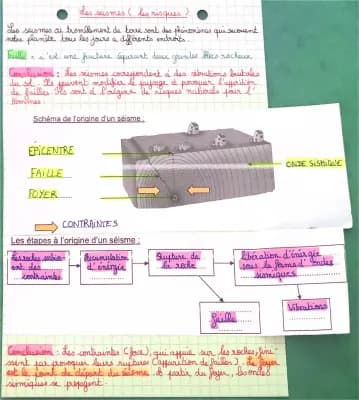 Les séismes ( les risques )
Les séismes ou tremblement de terre sont des phénomènes qui secouent
notre planète tous les jours à différents endroits.
Faille : c'est une fracture séparant deux grandes blocs rocheux.
Conclusion : Les séismes correspondent à des vibrations brutales
du sol. Ils peuvent modifier le paysage et provoquer l'apparition
de failles. Ils sont à l'origine de risques naturels pour l'
Hommes.
Schéma de l'origine d'un séisme :
ÉPICENTRE
ONDE SISMIQUE
FAILLE
FOYER
CONTRAINTES
Les étapes à l'origine d'un séisme :
Les roches subis-
sent des
contraintes
Accumulation
d'énergie
Rupture de
la roche
Libération d'énergie
sous la forme d'ondes
sismiques
faille
Vibrations
Conclusion : Les contraintes (force), qui appuie sur les roches, fini-
ssent par provoquer leurs ruptures (apparition de failles). Le foyer
est le point de départ du séisme. À partir du foyer, les ondes
sismiques se propagent.